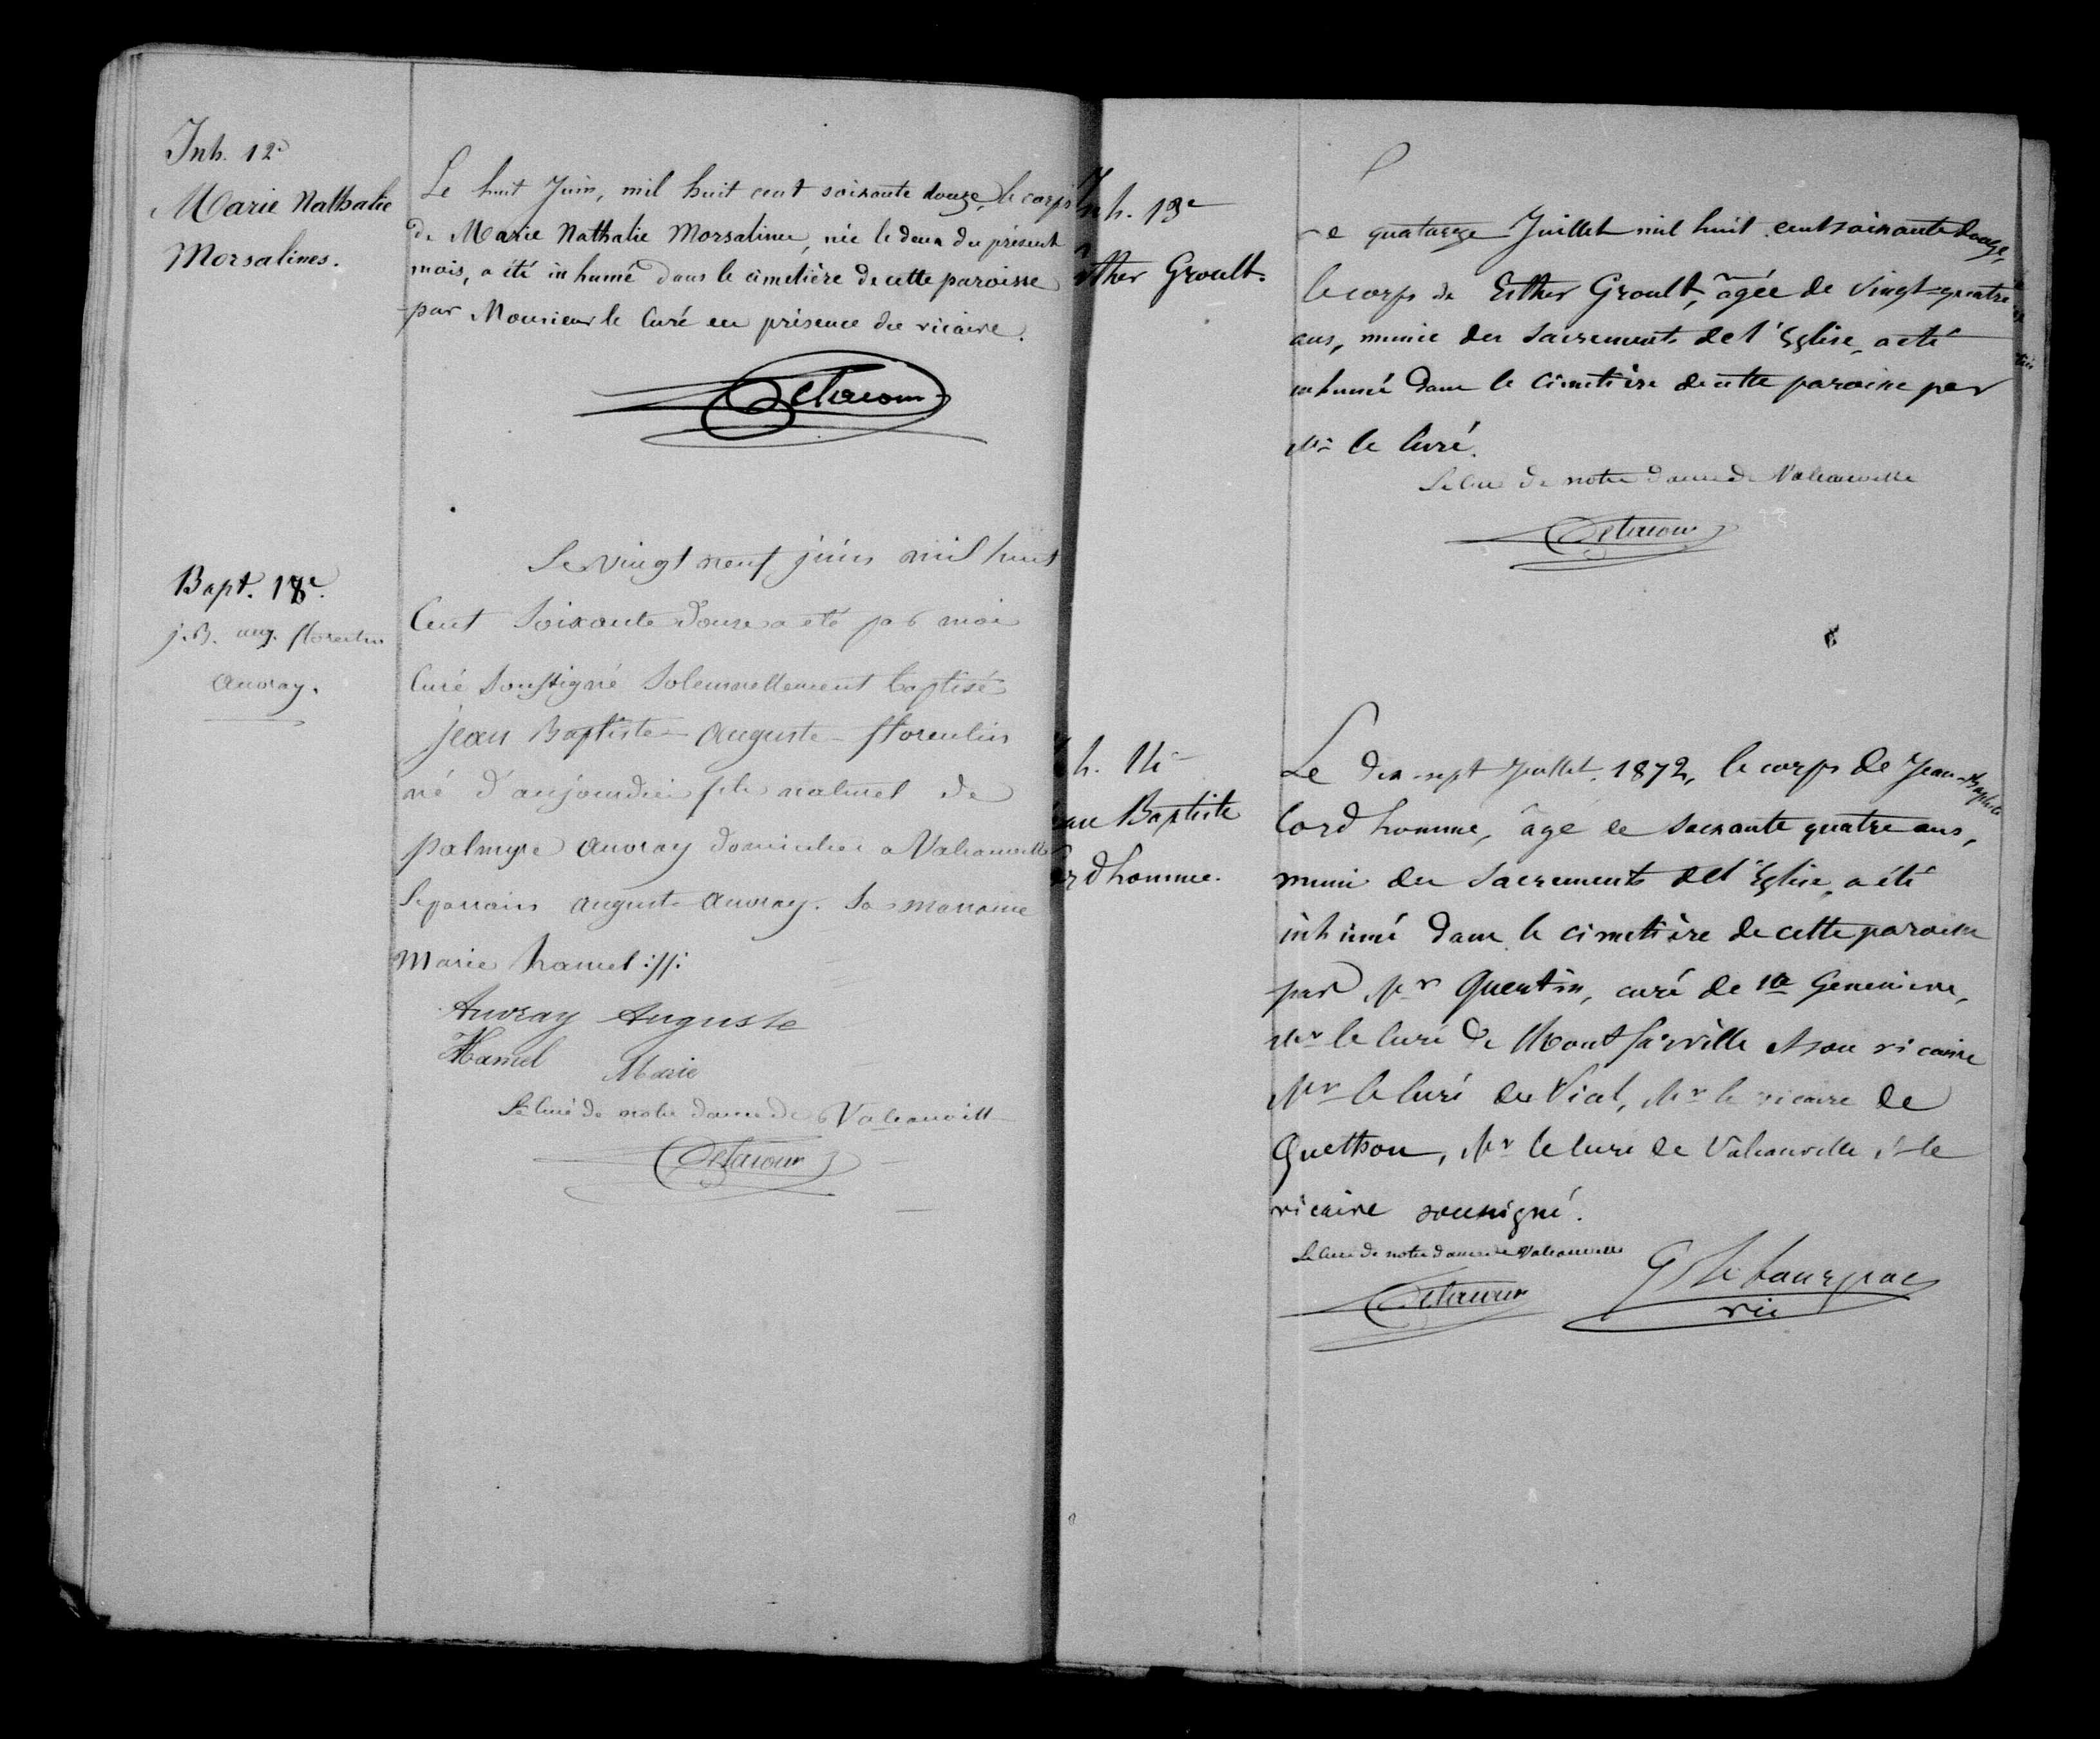 Inh. 12e
Marie Nathalie
Morsalines.
Le huit Juin, mil huit cent soixante douze, le corps
de Marie Nathalie Morsalines, née le deux du présent
mois, a été inhumé dans le cimetière de cette paroisse
par Monsieur le Curé en présence du vicaire.
Delacour
Bapt. 18e.
j. B. aug. florentin
auvray.
Le vingt neuf juin mil huit
Cent Soixante douze a été par moi
Curé Soussigné Solennellement baptisé
jean Baptiste auguste florentin
né d'aujourdui fils naturel de
palmyre auvray domiciliée a Valcanville
Le parrain auguste auvray. Sa marraine
Marie hamel :/:
Auvray Auguste
Hamel Marie
Le Curé de notre dame de Valcanville
Delacour
nh. 13e
sther Groult.
Le quatorze Juillet mil huit cent soixante douze,
le corps de Esther Groult, âgée de vingt-quatre
ans, munie des Sacrements de l'Eglise, a été
inhumé dans le Cimetière de cette paroisse par
Mr le Curé.
Le Curé de notre dame de Valcanville
Delacour
h. 14e
ean Baptiste
ordhomme.
Le dix-sept Juillet 1872, le corps de Jean-Baptiste
Cordhomme, âgé de soixante quatre ans,
muni des Sacrements de l'Eglise, a été
inhumé dans le cimetière de cette paroisse
par Mr Quentin, curé de Ste Geneviève,
Mr le Curé de Montfarville et son vicaire
Mr le Curé du Vicel, Mr le vicaire de
Quettehou, Mr le Curé de Valcanville et le
vicaire soussigné.
Le Curé de notre dame de Valcanville
Delacour
vic